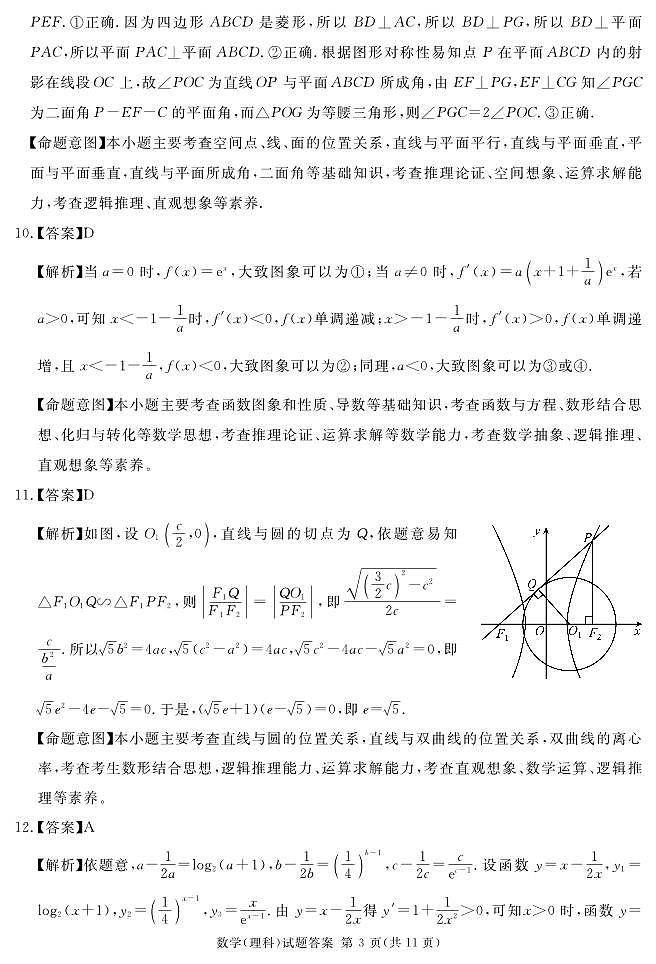 PEF.①正确.因为四边形 ABCD 是菱形,所以 BD⊥AC,所以 BD⊥PG,所以 BD⊥平面
PAC,所以平面 PAC⊥平面 ABCD.②正确.根据图形对称性易知点 P 在平面 ABCD 内的射
影在线段 OC 上,故∠POC 为直线 OP 与平面 ABCD 所成角,由 EF⊥PG,EF⊥CG 知∠PGC
为二面角 P-EF-C 的平面角,而△POG 为等腰三角形,则∠PGC=2∠POC.③正确.
【命题意图】本小题主要考查空间点、线、面的位置关系,直线与平面平行,直线与平面垂直,平
面与平面垂直,直线与平面所成角,二面角等基础知识,考查推理论证、空间想象、运算求解能
力,考查逻辑推理、直观想象等素养.
10.【答案】D
【解析】当 a=0 时,f(x)=e^x,大致图象可以为①;当 a≠0 时,f′(x)=a(x+1+1/a)e^x,若
a>0,可知 x<-1-1/a时,f′(x)<0,f(x)单调递减;x>-1-1/a时,f′(x)>0,f(x)单调递
增,且 x<-1-1/a,f(x)<0,大致图象可以为②;同理,a<0,大致图象可以为③或④.
【命题意图】本小题主要考查函数图象和性质、导数等基础知识,考查函数与方程、数形结合思
想、化归与转化等数学思想,考查推理论证、运算求解等数学能力,考查数学抽象、逻辑推理、
直观想象等素养。
11.【答案】D
【解析】如图,设 O₁(c/2,0),直线与圆的切点为 Q,依题意易知
△F₁O₁Q∽△F₁PF₂,则|F₁Q/F₁F₂|=|QO₁/PF₂|,即√((3/2 c)²-c²)/2c=
c/(b²/a).所以√5b²=4ac,√5(c²-a²)=4ac,√5c²-4ac-√5a²=0,即
√5e²-4e-√5=0.于是,(√5e+1)(e-√5)=0,即 e=√5.
y
P
Q
F₁
O
O₁
F₂
x
【命题意图】本小题主要考查直线与圆的位置关系,直线与双曲线的位置关系,双曲线的离心
率,考查考生数形结合思想,逻辑推理能力、运算求解能力,考查直观想象、数学运算、逻辑推
理等素养。
12.【答案】A
【解析】依题意,a-1/2a=log₂(a+1),b-1/2b=(1/4)^(b-1),c-1/2c=c/e^(c-1).设函数 y=x-1/2x,y₁=
log₂(x+1),y₂=(1/4)^(x-1),y₃=x/e^(x-1).由 y=x-1/2x得 y′=1+1/2x²>0,可知x>0 时,函数 y=
数学(理科)试题答案 第 3 页(共 11 页)